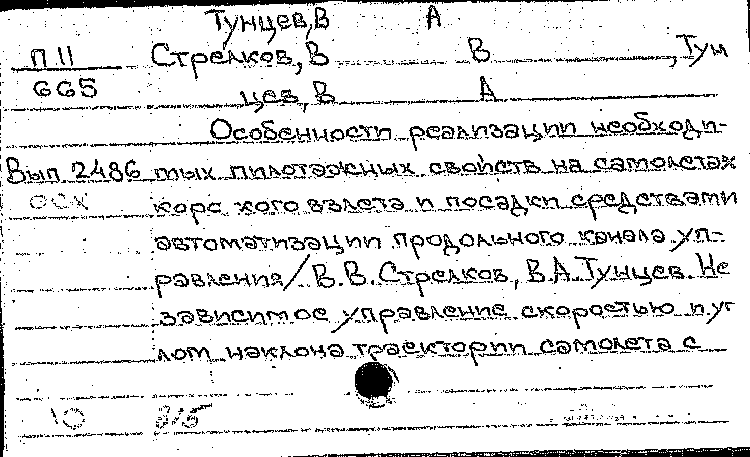 Тунцев, В А
П 11 Стрелков, В В , Тун
665 цев, В А
Особенности реализации необходи-
Вып 2486 мых пилотажных свойств на самолетах
оск коро кого взлета и посадки средствами
автоматизации продольного канала уп-
равления / В. В. Стрелков, В. А. Тунцев. Не
зависимое управление скоростью и уг
лом наклона траектории самолета с
10 315